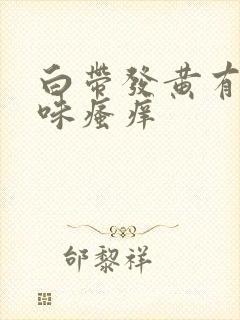 白帶發黃有
味瘙痒
邰黎祥